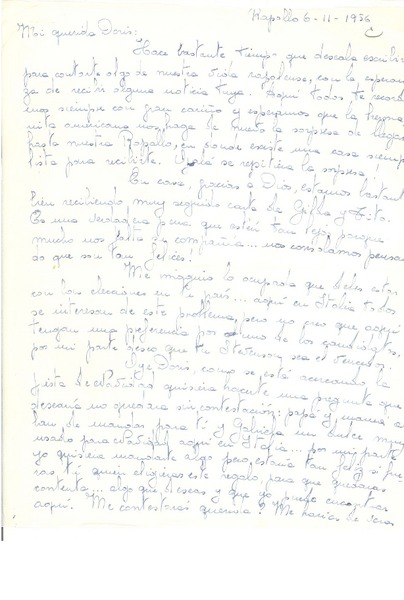 Rapallo 6-11-1956
Mi querida Doris:
Hace bastante tiempo que deseaba escribirte
para contarte algo de nuestra vida rapallense, con la esperan
za de recibir alguna noticia tuya. Aquí todos te recorda
mos siempre con gran cariño y esperamos que la
americana nos haga de nuevo la sorpresa de llegar
hasta nuestra Rapallo, en donde existe una casa siempre
lista para recibirte. Ojalá se repitiera la sorpresa!
En casa, gracias a Dios, estamos bastante
bien recibiendo muy seguido carta de Gilda y Tito.
Es una verdadera pena que estén tan lejos porque
mucho nos falta su compañía... nos consolamos pensan
do que son tan felices!
Me imagino lo ocupada que debes estar
con las elecciones en tu país... aquí en Italia todos
se interesan de este problema, pero yo creo que aquí
tengan una preferencia por uno de los candidatos,
por mi parte deseo que tu Stevenson sea el vencedor.
Oye Doris, como se está acercando la
fiesta de Navidad quisiera hacerte una pregunta que
desearía no quedara sin contestación: papá y mamá
de mandar para ti y Gabriela un dulce muy
usado para Navidad aquí en Italia... por mi parte
yo quisiera mandarte algo pero estaría tan feliz si fue
ras tú quien eligieras este regalo, para que quedaras
contenta... algo que deseas y que yo puedo encontrar
aquí. Me contestarás querida? Me harías de veras